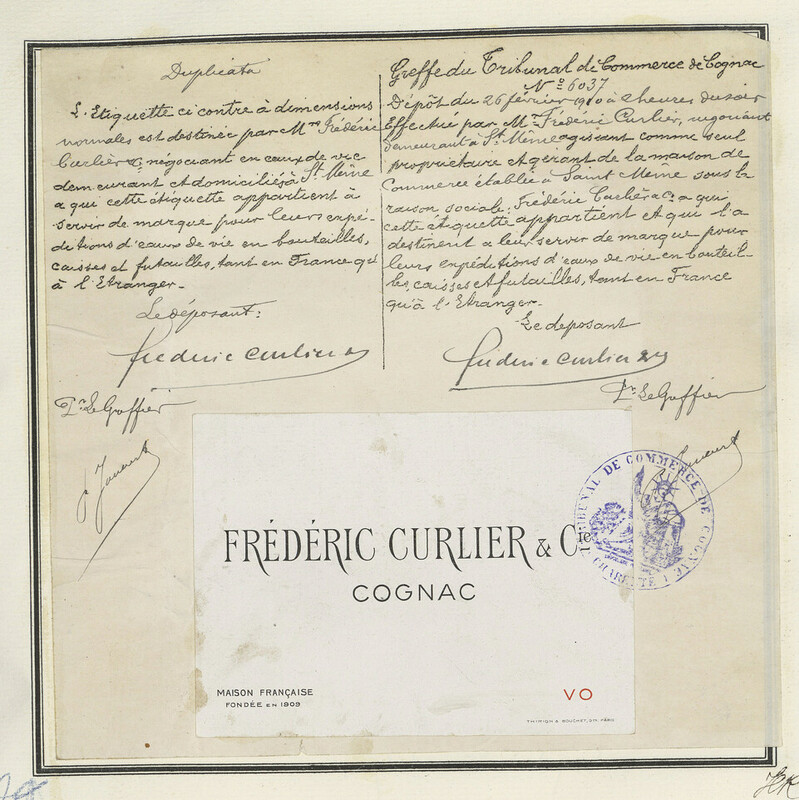 Duplicata
L'Etiquette ci contre à dimensions
normales est destinée par Mr Frédéric
Curlier & Cie négociant en eaux de vie
demeurant et domiciliés à St Même
a qui cette étiquette appartient à
servir de marque pour leurs expé-
ditions d'eaux de vie en bouteilles,
caisses et futailles, tant en France qu'
à l'Etranger.
Le déposant:
frédéric Curlier
Pr Le Greffier
Greffe du Tribunal de Commerce de Cognac
No 6037
Dépôt du 26 février 1910 à heures du soir
Effectué par Mr Frédéric Curlier, négociant
demeurant à St Même agissant comme seul
propriétaire et gérant de la maison de
Commerce établie à Saint Même sous la
raison sociale, Frédéric Curlié & Co a qui
cette étiquette appartient et qui l'a
destinent a leur servir de marque pour
leurs expéditions d'eaux de vie en bouteil-
les, caisses et futailles, tant en France
qu'à l'Etranger.
Le deposant
frédéric Curlier
Pr Le Greffier
TRIBUNAL DE COMMERCE DE COGNAC
CHARENTE
FRÉDÉRIC CURLIER & Cie
COGNAC
MAISON FRANÇAISE
FONDÉE EN 1909
VO